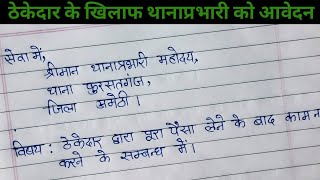 ठेकेदार के खिलाफ थानाप्रभारी को आवेदन
सेवा में,
श्रीमान थानाप्रभारी महोदय,
थाना फुरसतगंज,
जिला अमेठी।
विषय: ठेकेदार द्वारा पूरा पैसा लेने के बाद काम न
करने के सम्बन्ध में।